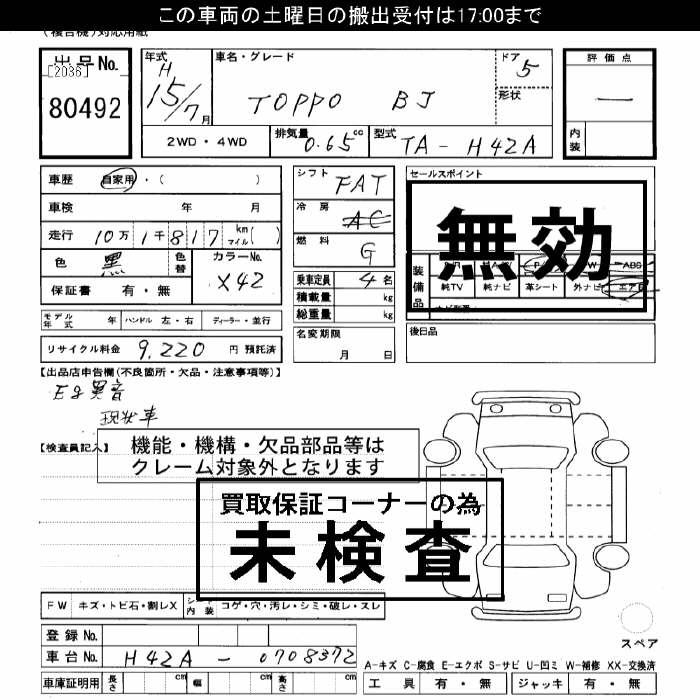 この車両の土曜日の搬出受付は17:00まで
(複合機)対応用紙
出品No.
[2036]
80492
年式
H
15/7月
車名・グレード
TOPPO BJ
ドア
5
形状
評価点
—
内装
2WD・4WD
排気量
0.65cc
型式
TA-H42A
車歴
自家用・( )
車検 年 月
走行 10万1千817 km マイル( )
色 黒
色替
カラーNo.
X42
保証書 有・無
シフト
FAT
冷房
AC
燃料
G
乗車定員 4名
積載量 kg
総重量 kg
セールスポイント
無効
装備品
ABS
純TV 純ナビ 革シート 外ナビ エアB
モデル年式 年 ハンドル 左・右 ディーラー・並行
名変期限
月 日
後日品
リサイクル料金 9,220 円 預託済
【出品店申告欄(不良箇所・欠品・注意事項等)】
Eg異音
現状車
【検査員記入】
機能・機構・欠品部品等は
クレーム対象外となります
買取保証コーナーの為
未検査
FW キズ・トビ石・割レX シート内装 コゲ・穴・汚レ・シミ・破レ・スレ
登録No.
車台No. H42A-0708372
車庫証明用 長さ cm 幅 cm 高さ cm
スペア
A-キズ C-腐食 E-エクボ S-サビ U-凹ミ W-補修 XX-交換済
工具 有・無 ジャッキ 有・無